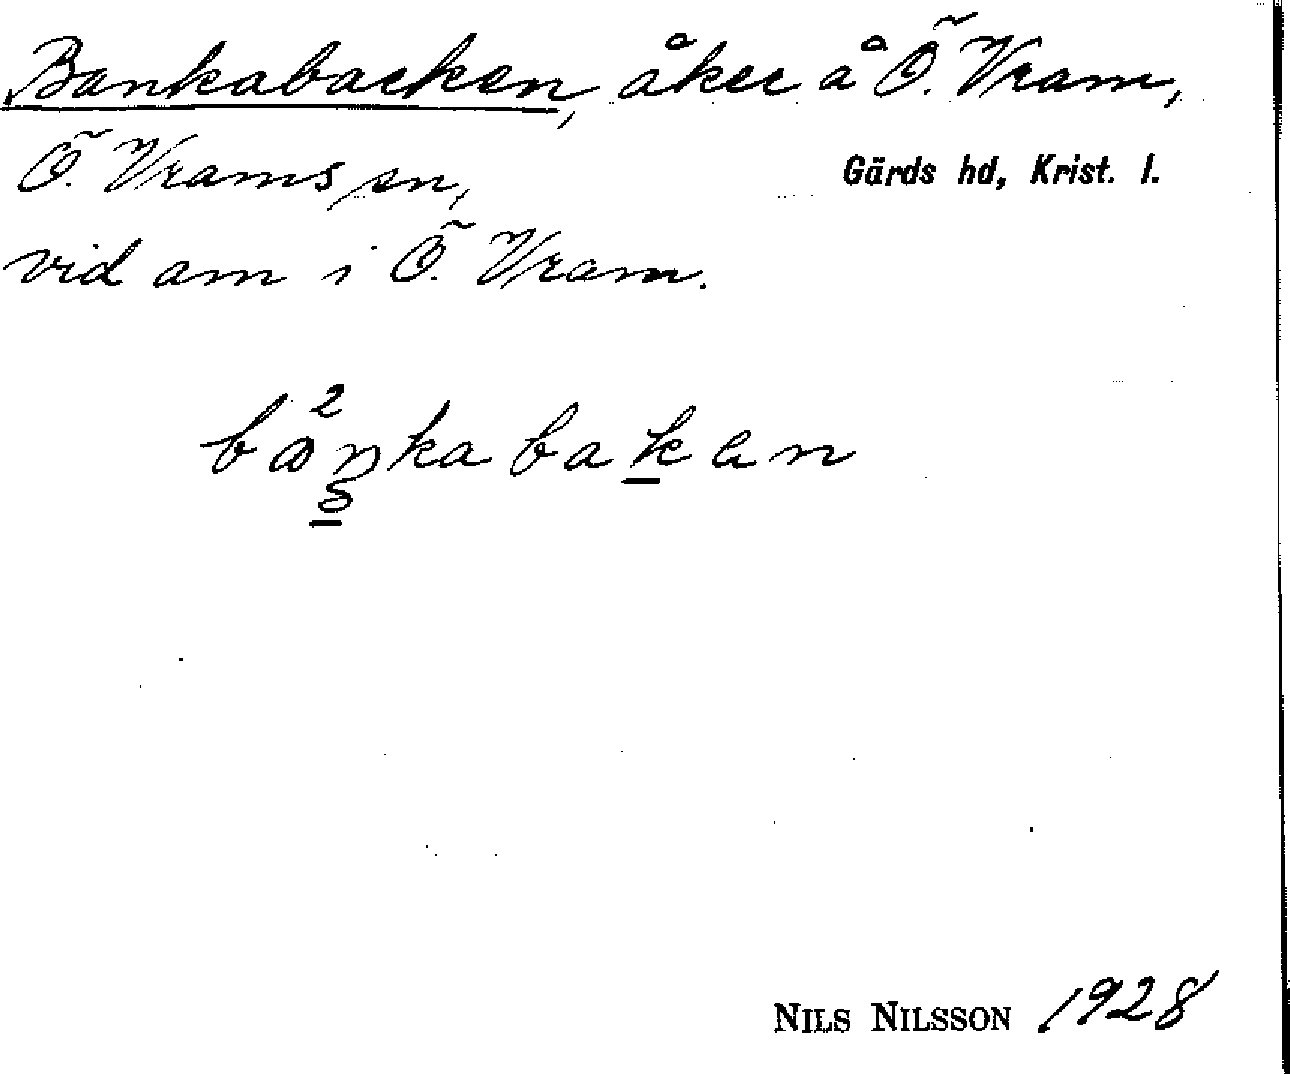 Bankabacken, åker å Ö. Vram,
Ö. Vrams sn,
Gärds hd, Krist. l.
vid åm i Ö. Vram.
NILS NILSSON 1928